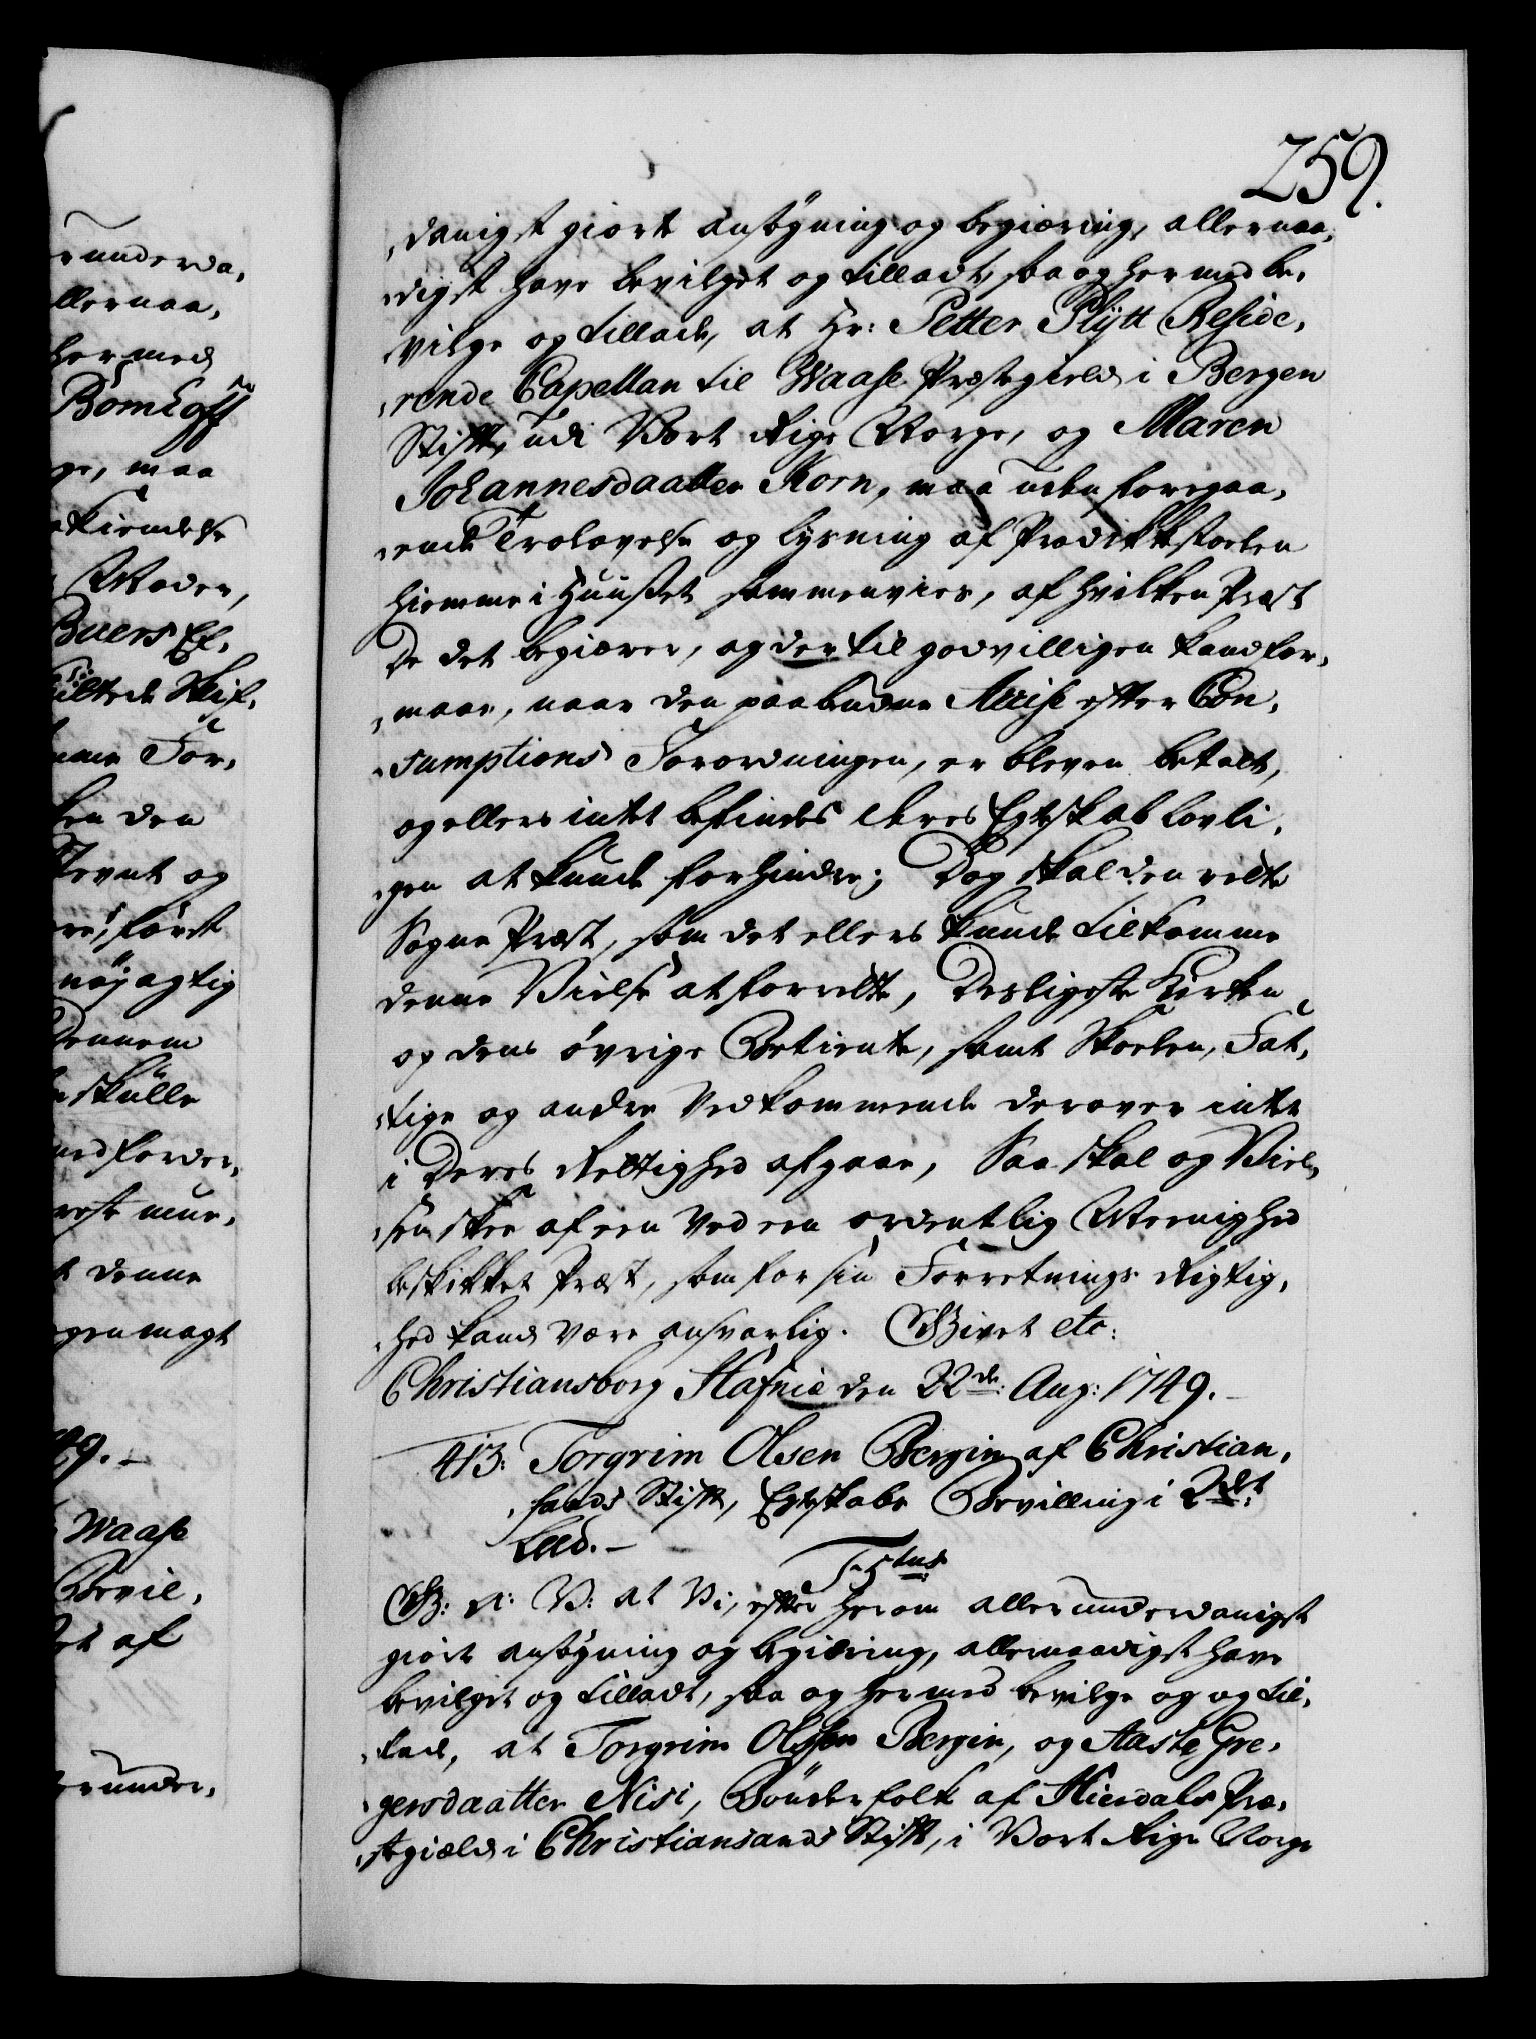 259.
danigst giort ansøgning og begiæring, allernaa,
digst have bevilget og tilladt, saa og hermed be,
vilge og tillade, at Hr: Petter Plÿtt Reside,
rende Capellan til Waase Præstegield i Bergen
Stift, udi Vort Rige Norge, og Maren
Johannesdaatter Korn, maa uden foregaa,
ende Trolovelse og lysning af Prædikkestoelen
hiemme i Huuset sammenvies, af hvilken Præst
De det begiærer, og der til godvilligen kand for,
maae, naar den paabudne Accise efter Con,
sumptions Forordningen, er bleven betalt,
og ellers intet befindes deres Egteskab lovli,
gen at kunde forhindre; Dog skal den rette
Sogne Præst, som det ellers kunde tilkomme
denne Vielse at forrette, Desligeste Kirken
og dens øvrige Betiente, samt Skoelen, Fat,
tige og andre Vedkommende derover intet
i Deres Rettighed afgaae, Saa skal og Viel,
sen skee af een ved een ordentlig Meenighed
beskikket Præst, som for sin Forretnings Rigtig,
hed kand være ansvarlig. Givet etc:
Christiansborg Hafnie den 22de: Aug: 1749.
413: Torgrim Olsen Bergin af Christian,
sands Stift, Egteskabs Bevilling i 2det
Leed.
T-5tus
G: A: V: at Vi, efter herom allerunderdanigst
giort ansøgning og begiæring, allernaadigst have
bevilget og tilladt, saa og hermed bevilge og og til,
lade, at Torgrim Olssen Bergin, og Aaste Gre,
gersdaatter Nisi, Bønderfolk af Hierdals Præ,
stegield i Christiansands Stift, i Vort Rige Norge
runderda,
llernaa,
hermed
Bömhoff
ge, maa
Moder,
Buers Ef,
For,
ken den
Nevnt og
først
nøjagtig
Dennem
skulle
denne
gen magt
49.
Waase
Bevil,
et af
erunder,